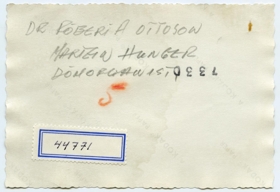 DR ROBERT A OTTOSON
MARTIN HUNGER
DOMORGANIST
1330
5
44771